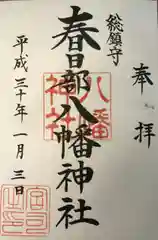 奉拝
総鎮守
春日部八幡神社
八幡
神社
平成三十年一月三日